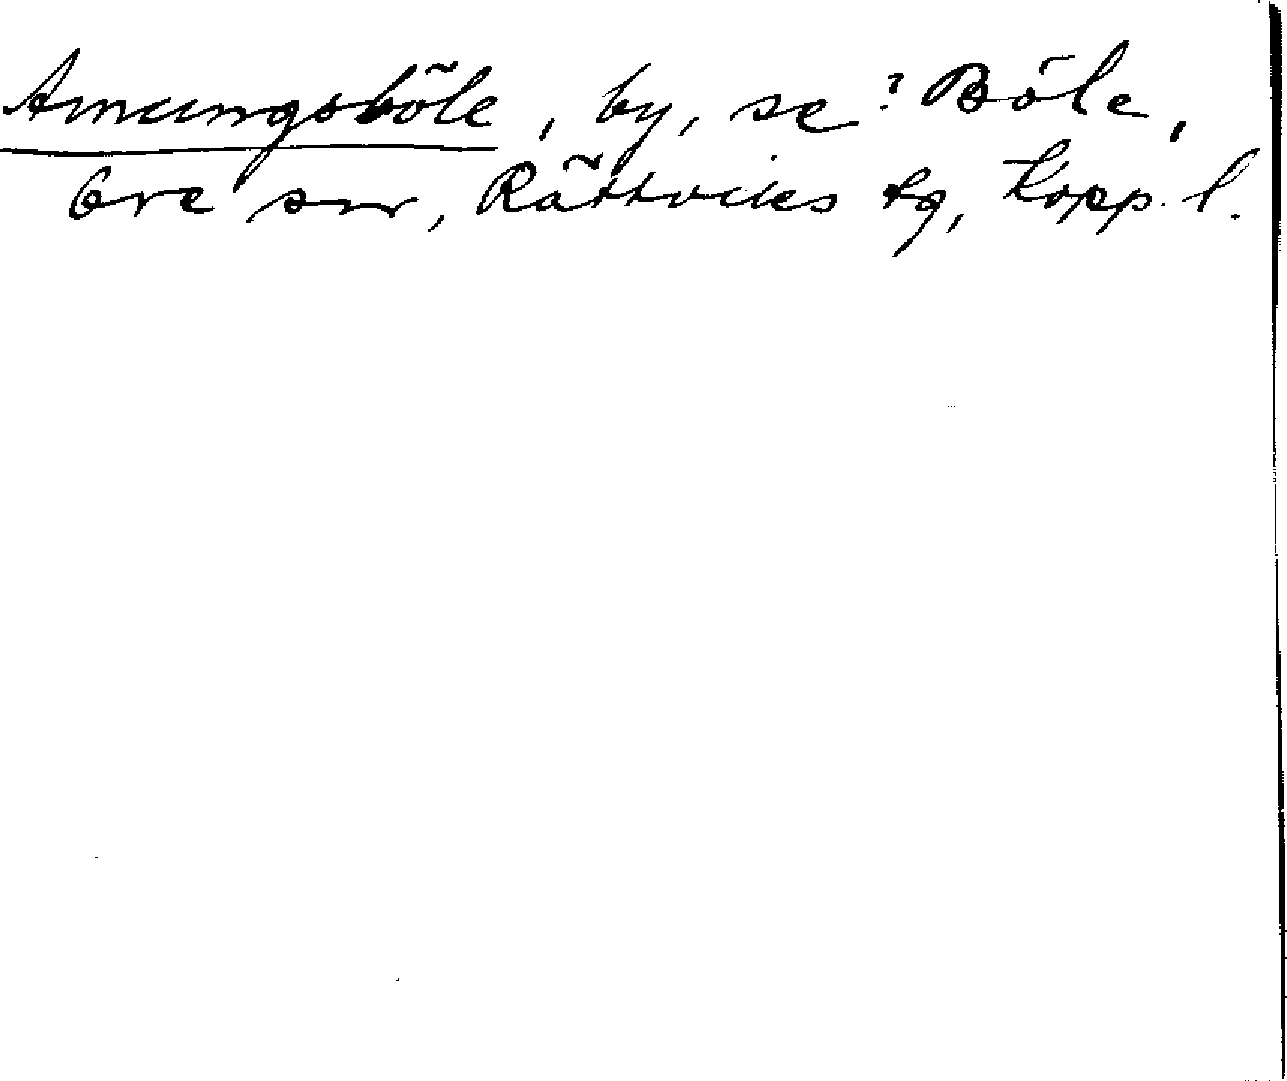 Amungsböle, by, se? Böle,
Ore sn, Rättviks tg, Kopp. l.